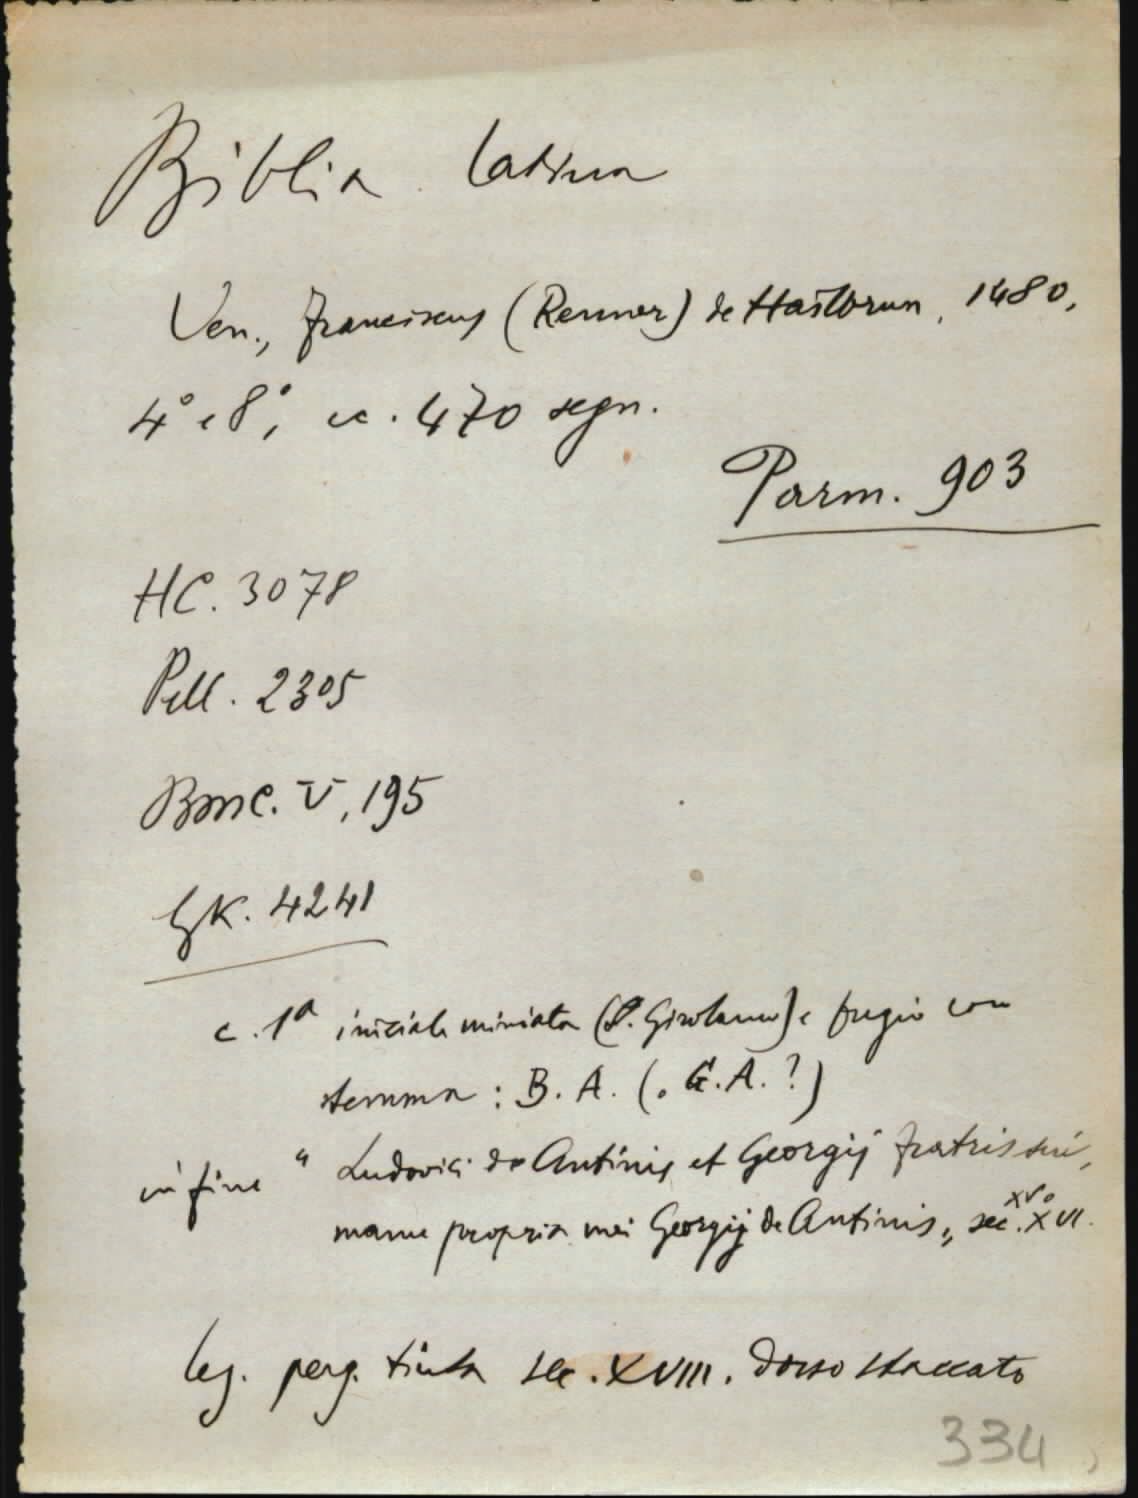 Biblia latina
Ven., Franciscus (Renner) de Hailbrun, 1480,
4° e 8°, cc. 470 segn.
Parm. 903
HC. 3078
Pell. 2305
BMC. V, 195
GK. 4241
c. 1ª iniciale miniata (S. Girolamo) e fregio con
stemma: B. A. (. G. A. ?)
in fine " Ludovici de Antinis et Georgij fratris sui,
manu propria mei Georgij de Antinis „ sec. XVI.
XV o
leg. perg. tinta sec. XVIII. Dorso staccato
334